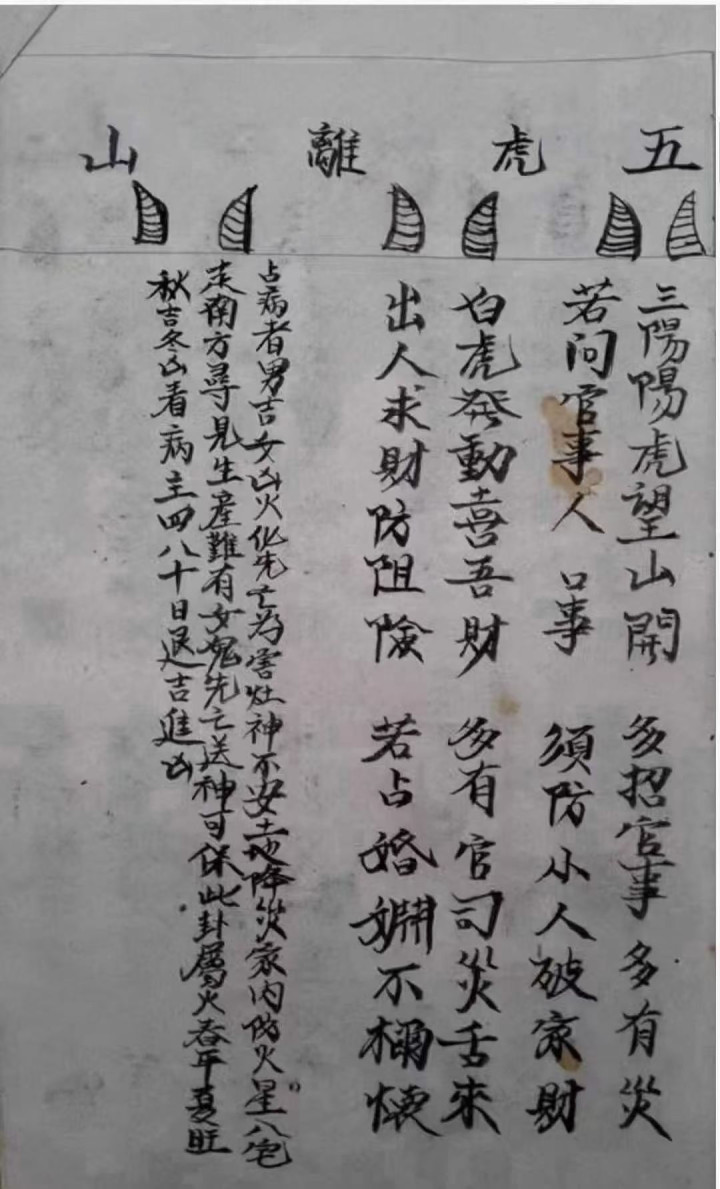 五虎離山
三陽陽虎望山開 多招官事多有災
若问官事人口事 須防小人破家財
白虎發動喜吾財 多有官司災舌來
出人求財防阻險 若占婚姻不稱懷
占病者男吉女凶火化先亡為害灶神不安土地降災家内防火星入宅
走南方尋見生產難有女鬼先亡送神可保此卦屬火春平夏旺
秋吉冬凶看病主四八十日退吉進凶